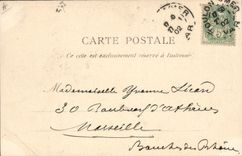 CARTE POSTALE
Ce côté est exclusivement réservé à l'adresse
Mademoiselle Yvonne
30 Boulevard d'Athènes
Marseille
Bouches du Rhône